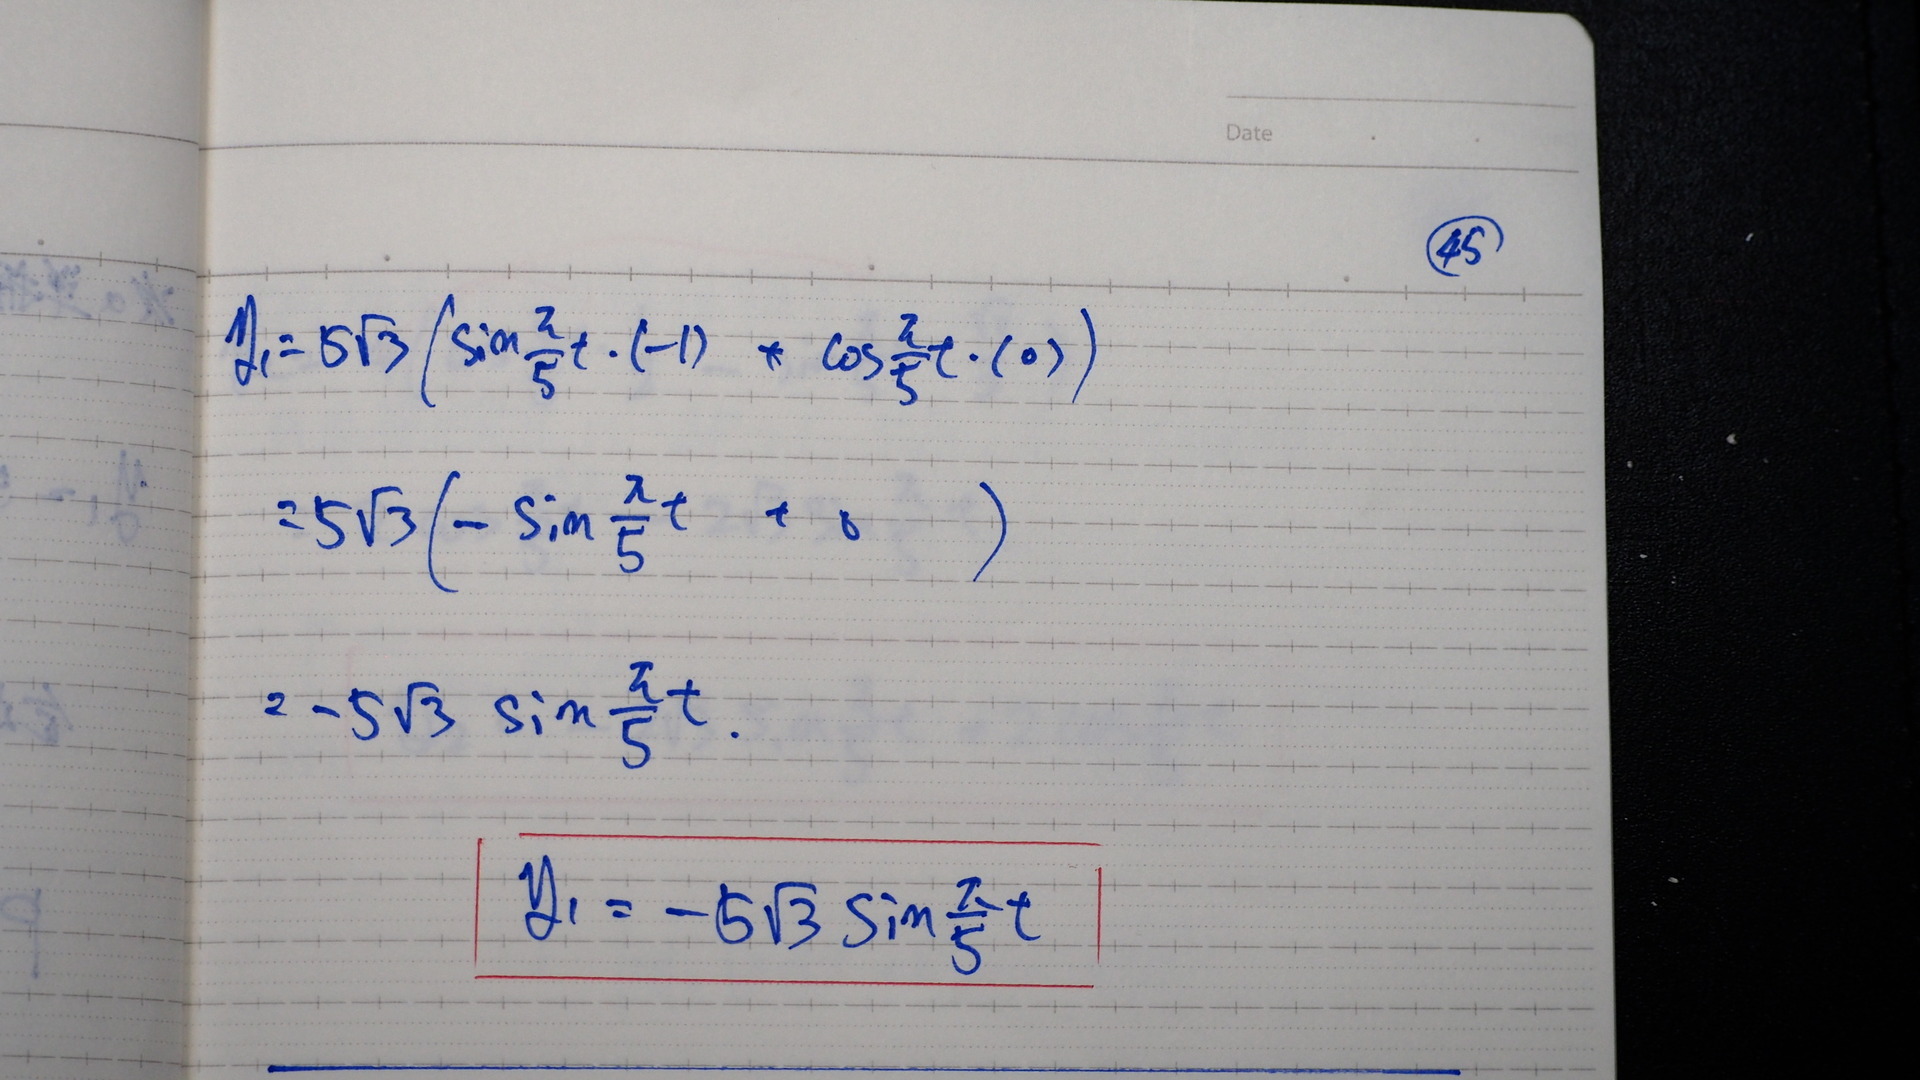 Date
45
y₁ = 5√3 (sin π/5 t · (-1) + cos π/5 t · (0))
= 5√3 (- sin π/5 t + 0)
= -5√3 sin π/5 t.
y₁ = -5√3 sin π/5 t